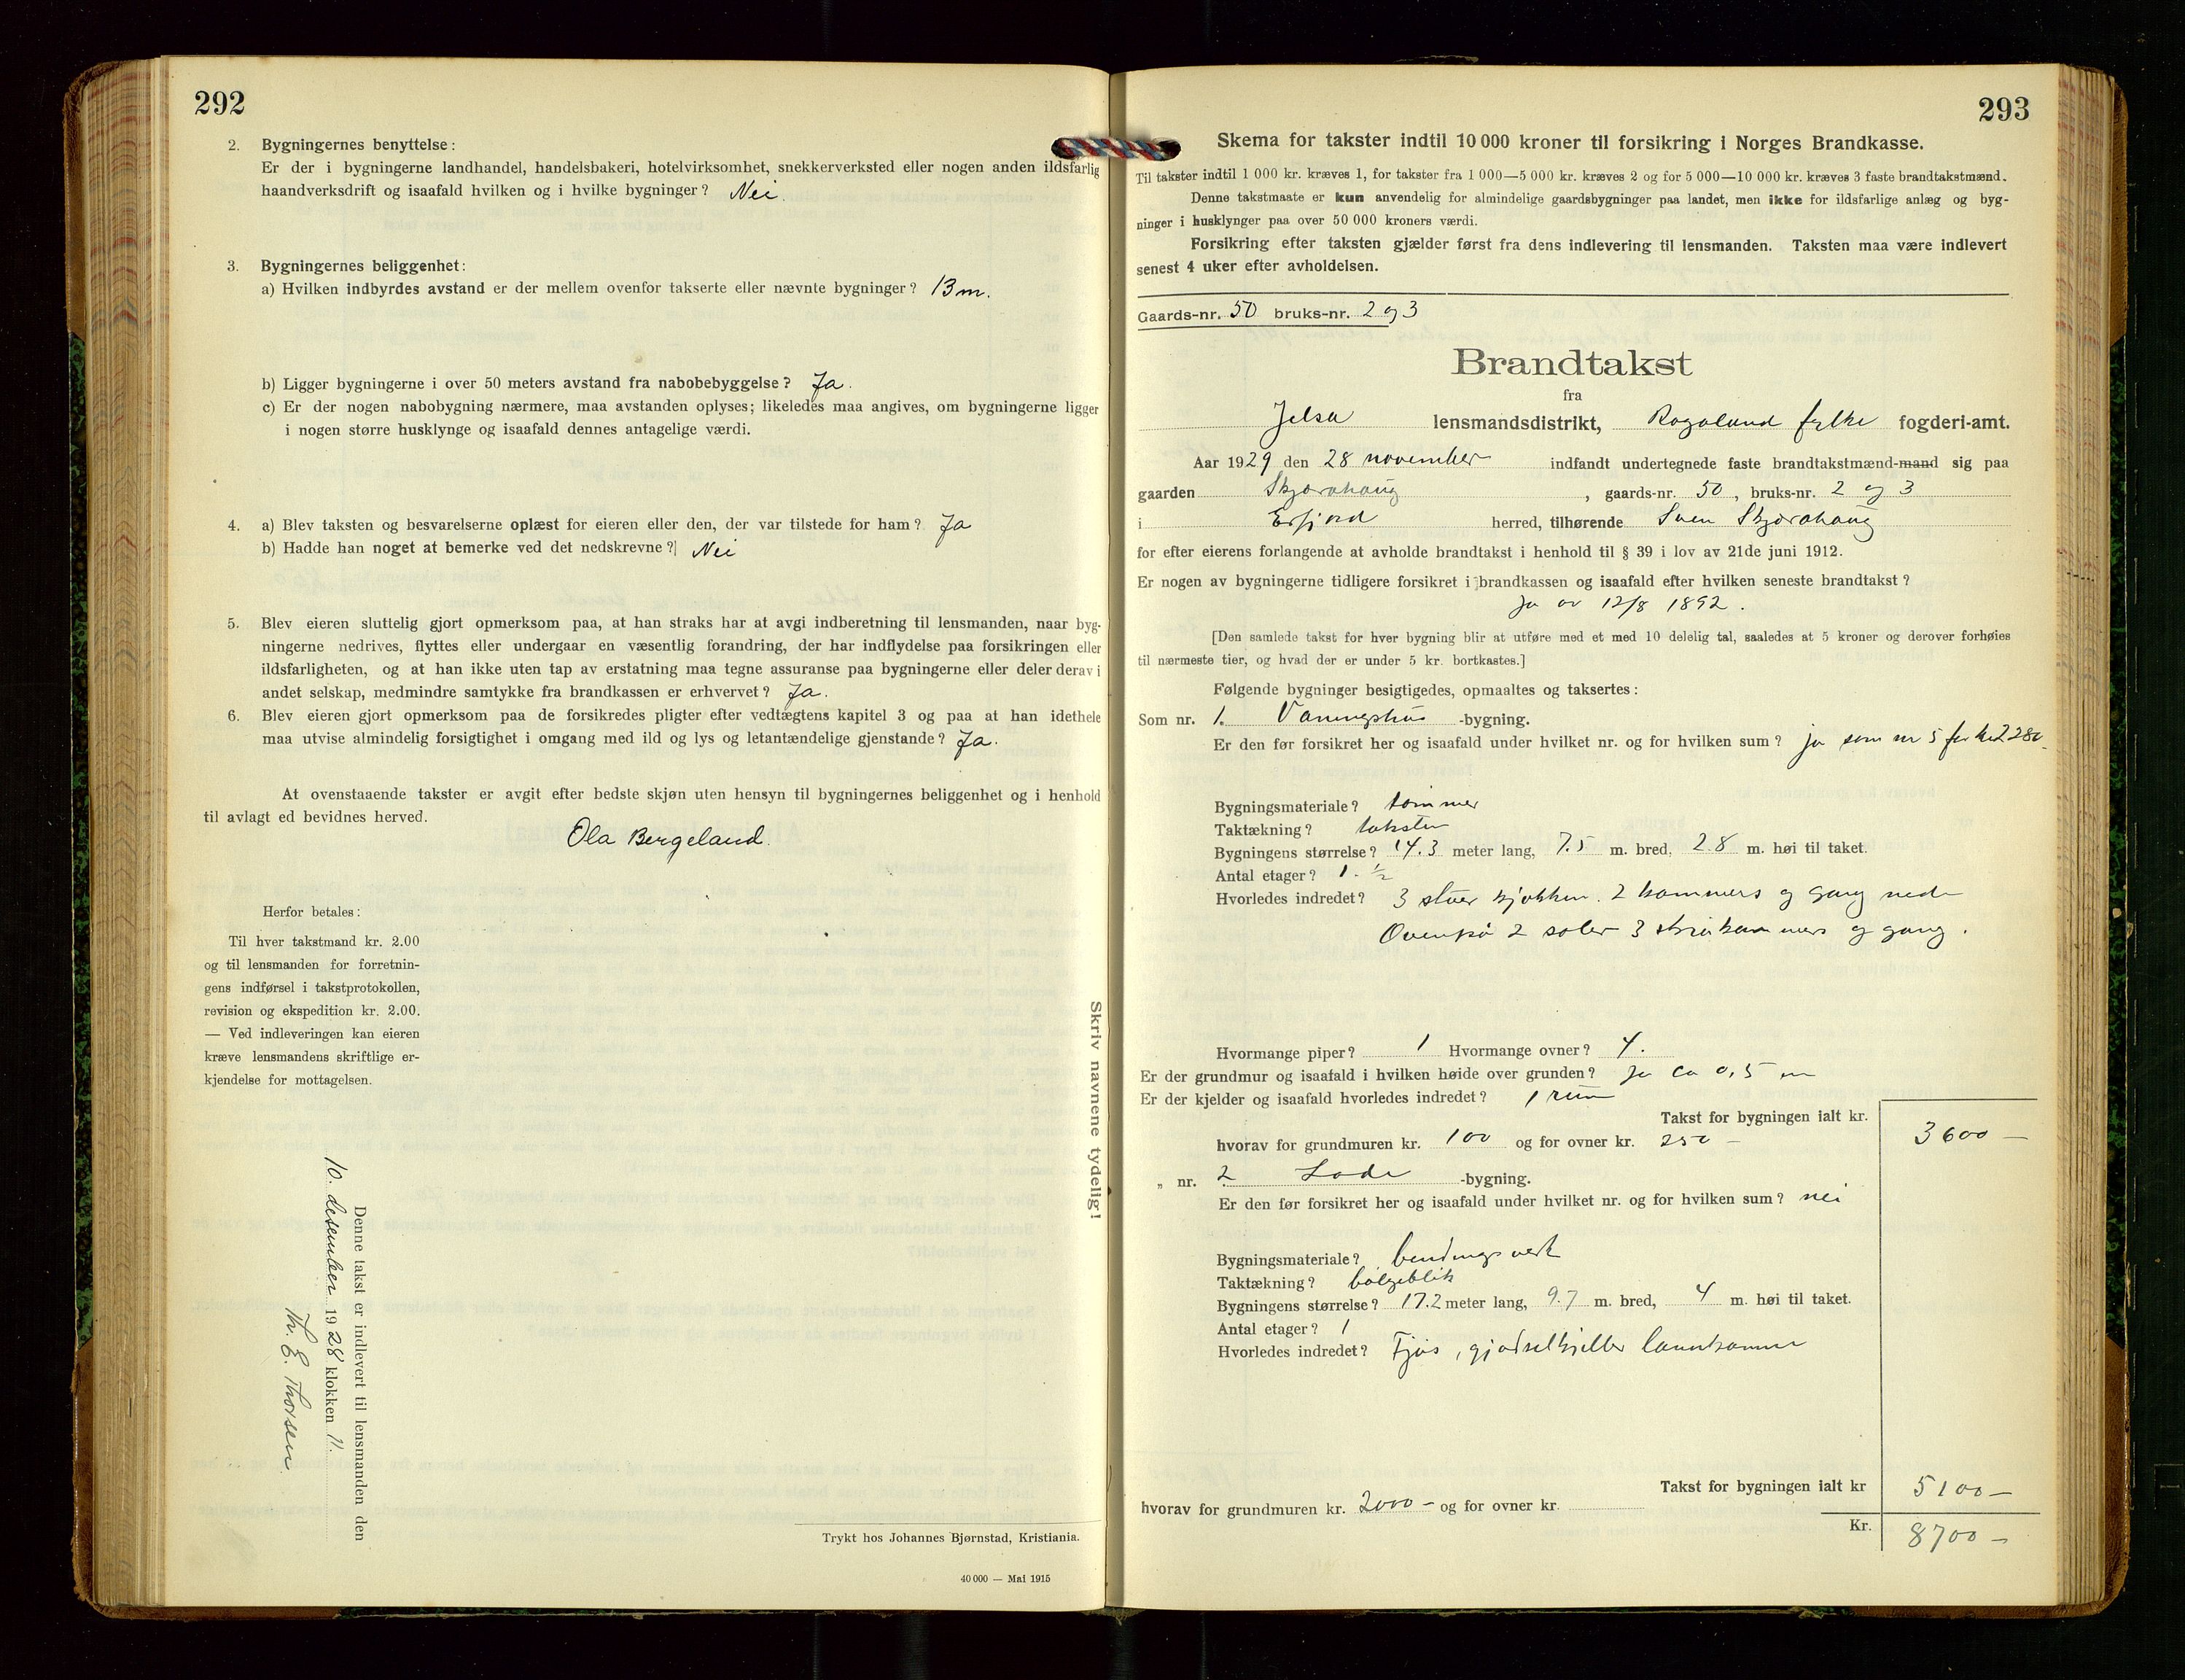 292
2. Bygningernes benyttelse:
Er der i bygningerne landhandel, handelsbakeri, hotelvirksomhet, snekkerverksted eller nogen anden ildsfarlig
haandverksdrift og isaafald hvilken og i hvilke bygninger? Nei.
3. Bygningernes beliggenhet:
a) Hvilken indbyrdes avstand er der mellem ovenfor takserte eller nævnte bygninger? 13 m.
b) Ligger bygningerne i over 50 meters avstand fra nabobebyggelse? Ja.
c) Er der nogen nabobygning nærmere, maa avstanden oplyses; likeledes maa angives, om bygningerne ligger
i nogen større husklynge og isaafald dennes antagelige værdi.
4. a) Blev taksten og besvarelserne oplæst for eieren eller den, der var tilstede for ham? Ja
b) Hadde han noget at bemerke ved det nedskrevne? Nei
5. Blev eieren sluttelig gjort opmerksom paa, at han straks har at avgi indberetning til lensmanden, naar byg-
ningerne nedrives, flyttes eller undergaar en væsentlig forandring, der har indflydelse paa forsikringen eller
ildsfarligheten, og at han ikke uten tap av erstatning maa tegne assuranse paa bygningerne eller deler derav i
andet selskap, medmindre samtykke fra brandkassen er erhvervet? Ja.
6. Blev eieren gjort opmerksom paa de forsikredes pligter efter vedtægtens kapitel 3 og paa at han idethele
maa utvise almindelig forsigtighet i omgang med ild og lys og letantændelige gjenstande? Ja.
At ovenstaaende takster er avgit efter bedste skjøn uten hensyn til bygningernes beliggenhet og i henhold
til avlagt ed bevidnes herved.
Ola Bergeland.
Herfor betales:
Til hver takstmand kr. 2.00
og til lensmanden for forretnin-
gens indførsel i takstprotokollen,
revision og ekspedition kr. 2.00.
— Ved indleveringen kan eieren
kræve lensmandens skriftlige er-
kjendelse for mottagelsen.
Denne takst er indlevert til lensmanden den
10. desember 1928 klokken 11.
Th. E. Thorsen
Skriv navnene tydelig!
Trykt hos Johannes Bjørnstad, Kristiania.
40 000 — Mai 1915
293
Skema for takster indtil 10 000 kroner til forsikring i Norges Brandkasse.
Til takster indtil 1 000 kr. kræves 1, for takster fra 1 000—5 000 kr. kræves 2 og for 5 000—10 000 kr. kræves 3 faste brandtakstmænd.
Denne takstmaate er kun anvendelig for almindelige gaardsbygninger paa landet, men ikke for ildsfarlige anlæg og byg-
ninger i husklynger paa over 50 000 kroners værdi.
Forsikring efter taksten gjælder først fra dens indlevering til lensmanden. Taksten maa være indlevert
senest 4 uker efter avholdelsen.
Gaards-nr. 50 bruks-nr. 2 og 3
Brandtakst
fra
Jelsa lensmandsdistrikt, Rogaland fylke fogderi-amt.
Aar 1929 den 28 november indfandt undertegnede faste brandtakstmænd-mand sig paa
gaarden Skjørahaug, gaards-nr. 50, bruks-nr. 2 og 3
i Erfjord herred, tilhørende Sven Skjørahaug
for efter eierens forlangende at avholde brandtakst i henhold til § 39 i lov av 21de juni 1912.
Er nogen av bygningerne tidligere forsikret i brandkassen og isaafald efter hvilken seneste brandtakst?
Ja av 12/8 1892.
[Den samlede takst for hver bygning blir at utføre med et med 10 delelig tal, saaledes at 5 kroner og derover forhøies
til nærmeste tier, og hvad der er under 5 kr. bortkastes.]
Følgende bygninger besigtigedes, opmaaltes og taksertes:
Som nr. 1. Vaaningshus -bygning.
Er den før forsikret her og isaafald under hvilket nr. og for hvilken sum? ja som nr 5 for kr 2280
Bygningsmateriale? tømmer
Taktækning? taksten
Bygningens størrelse? 14.3 meter lang, 7.5 m. bred, 2.8 m. høi til taket.
Antal etager? 1. 1/2
Hvorledes indredet? 3 stuer kjøkken. 2 kammers og gang nede
Ovenpå 2 saler 3 kammers og gang.
Hvormange piper? 1 Hvormange ovner? 4.
Er der grundmur og isaafald i hvilken høide over grunden? Ja ca 0,5 m
Er der kjelder og isaafald hvorledes indredet? 1 rum
Takst for bygningen ialt kr.
hvorav for grundmuren kr. 100 og for ovner kr. 250 — 3600 —
„ nr. 2 Løde -bygning.
Er den før forsikret her og isaafald under hvilket nr. og for hvilken sum? nei
Bygningsmateriale? bendingsverk
Taktækning? bølgeblik
Bygningens størrelse? 17.2 meter lang, 9.7 m. bred, 4 m. høi til taket.
Antal etager? 1
Hvorledes indredet? Fjøs, gjødselkjeller
Takst for bygningen ialt kr 5100 —
hvorav for grundmuren kr. 2000 — og for ovner kr.
Kr. 8700 —